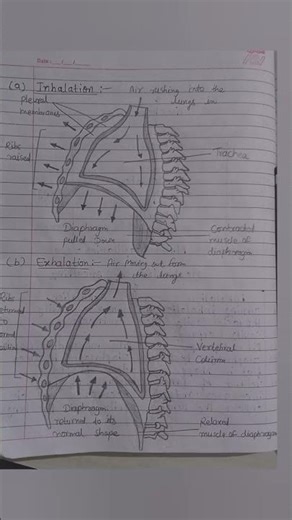 Date
(a) Inhalation :- Air rushing into the
lungs in
pleural
membranes
Ribs
raised
Trachea
Diaphragm
pulled down
Contracted
muscle of
diaphragm
(b) Exhalation :- Air moving out from
the lungs
Ribs
returned
to
Vertebral
Column
Diaphragm
returned to its
normal shape
Relaxed
muscle of diaphragm